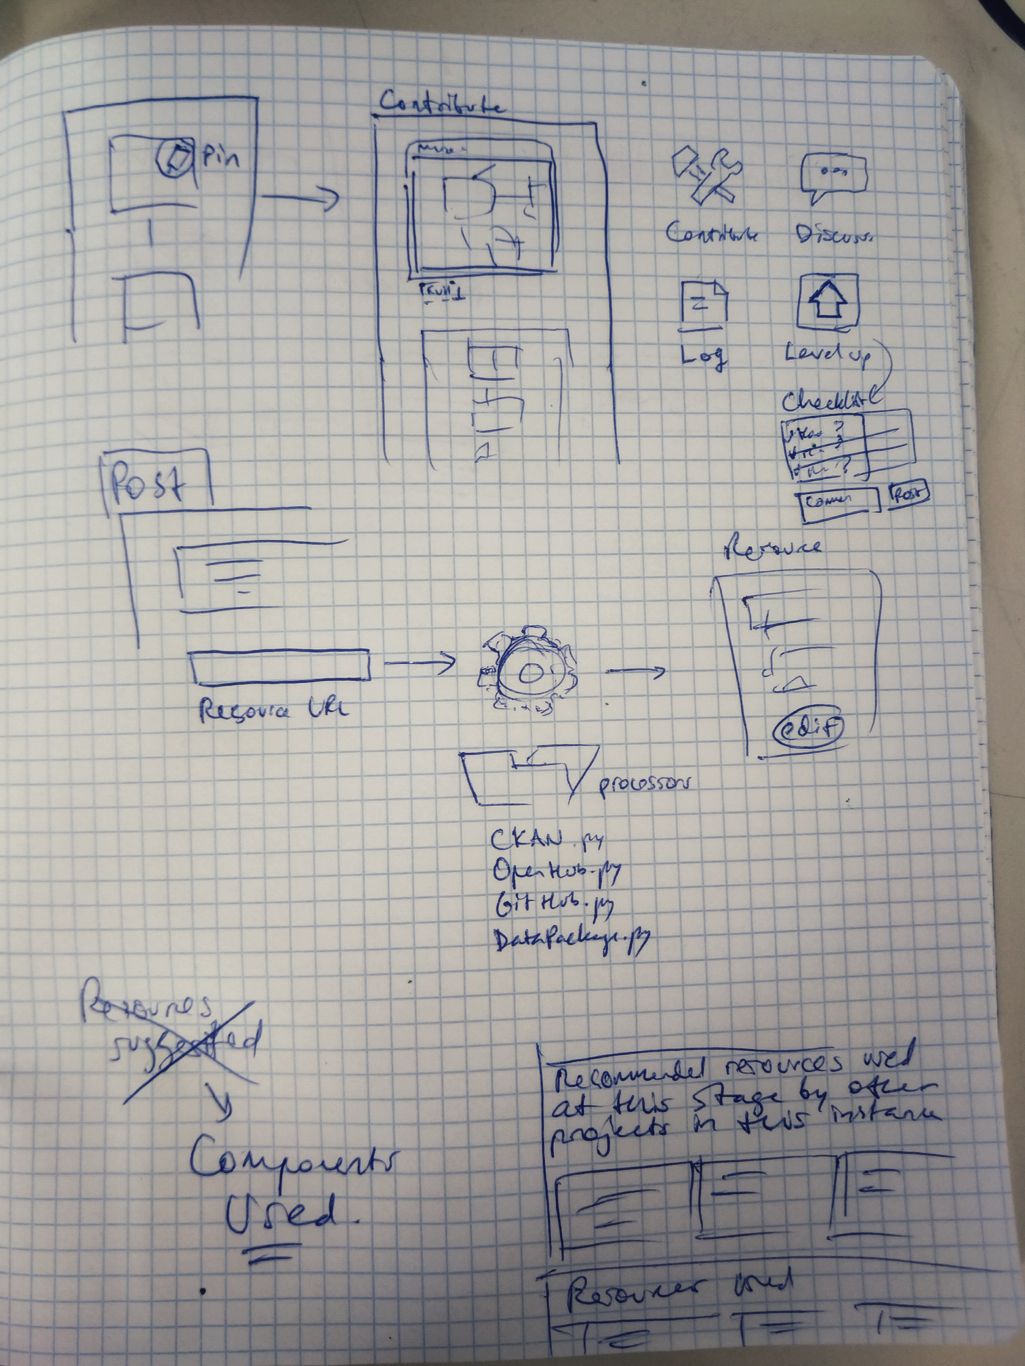 Contribute
Pin
Contribute
Discuss
Log
Level up
Checklist
Post
Post
Resource
Resource URL
edit
processors
CKAN.py
OpenHub.py
GitHub.py
DataPackage.py
Resources
suggested
Components
Used.
Recommended resources used
at this stage by other
projects in this instance
Resources used